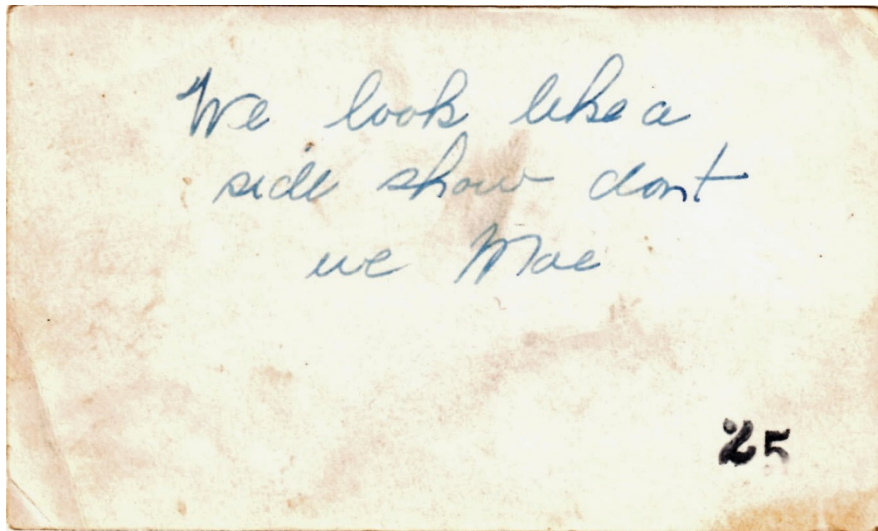 We look like a
side show dont
we Mae
25